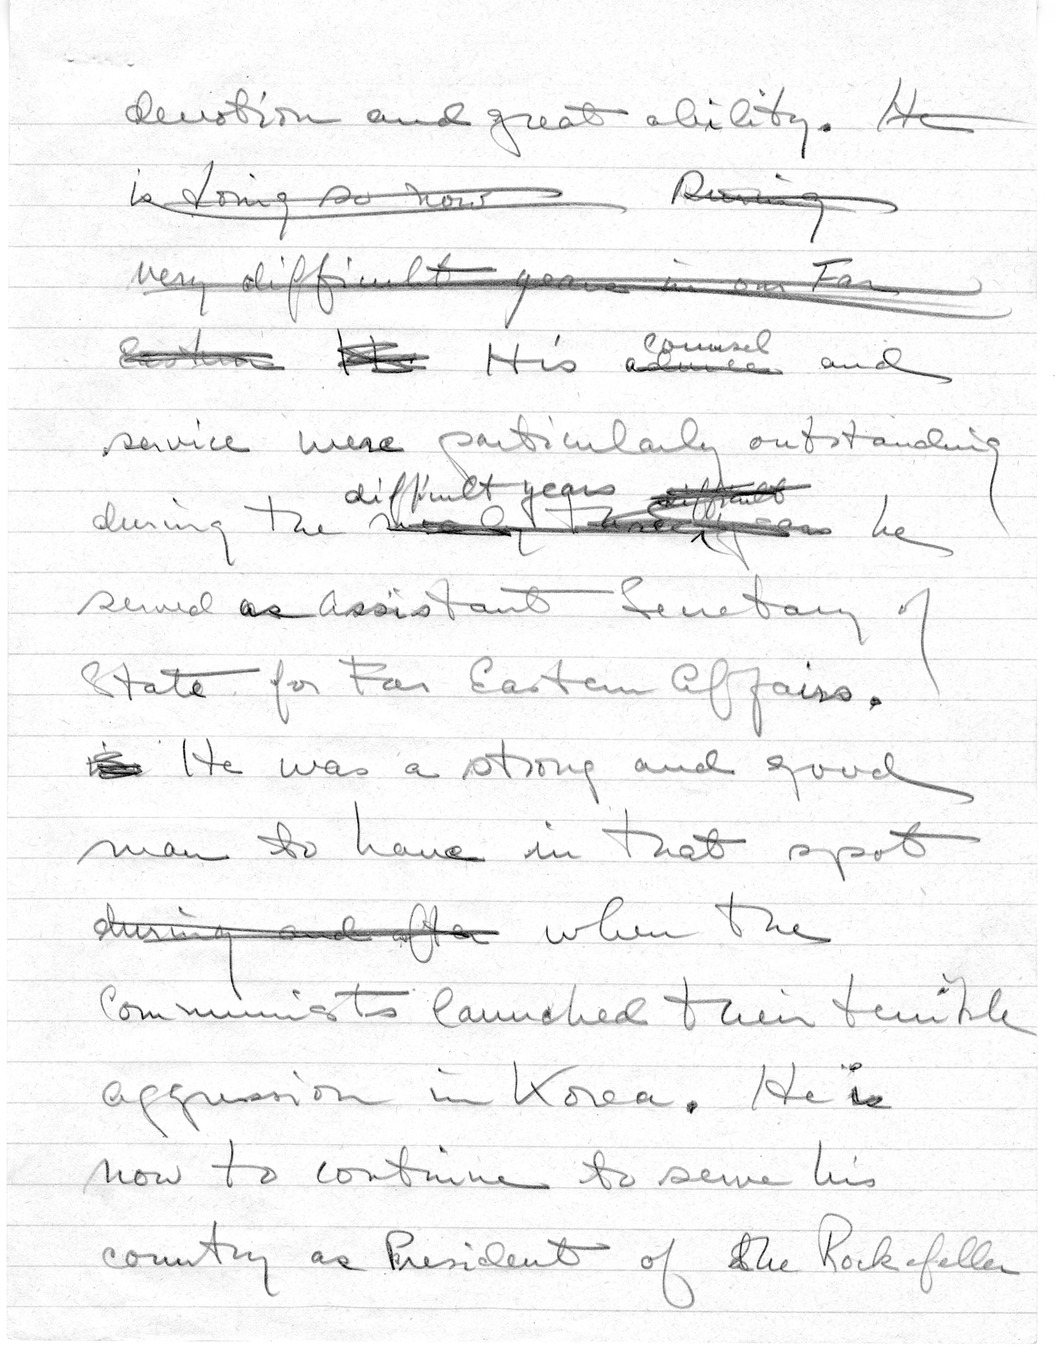 devotion and great ability. He
is doing so now During
very difficult years in our Far
Eastern His counsel advice and
service were particularly outstanding
difficult years difficult
during the nearly three years he
served as Assistant Secretary of
State for Far Eastern Affairs.
He was a strong and good
man to have in that spot
during and after when the
Communists launched their terrible
aggression in Korea. He is
now to continue to serve his
country as President of the Rockefeller